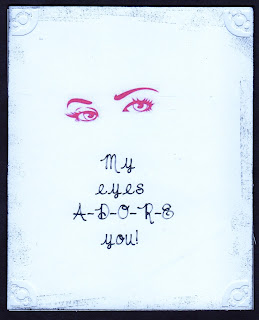 My
eyes
A-D-O-R-E
you!